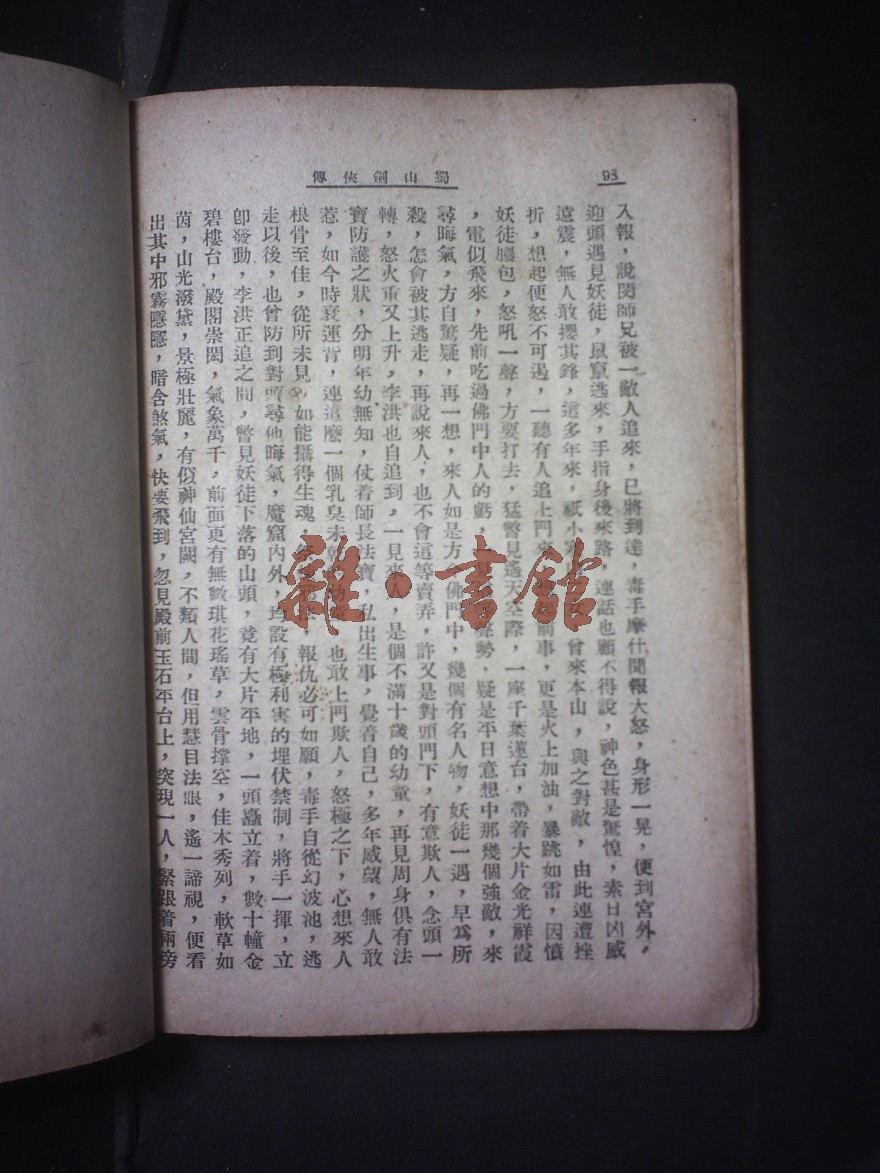 98
蜀山劍俠傳
入報，說閔師兄被一敵人追來，已將到達，毒手摩什聞報大怒，身形一晃，便到宮外，
迎頭遇見妖徒，鼠竄逃來，手指身後來路，連話也顧不得說，神色甚是驚惶，素日凶威
遠震，無人敢攖其鋒，這多年來，祇小寒 曾來本山，與之對敵，由此連遭挫
折，想起便怒不可遏，一聽有人追上門 前事，更是火上加油，暴跳如雷，因憤
妖徒膿包，怒吼一聲，方要打去，猛瞥見遙天空際，一座千葉蓮台，帶着大片金光祥霞
，電似飛來，先前吃過佛門中人的虧， 聲勢，疑是平日意想中那幾個強敵，來
尋晦氣，方自驚疑，再一想，來人如是方 佛門中，幾個有名人物，妖徒一遇，早爲所
殺，怎會被其逃走，再說來人，也不會這等賣弄，許又是對頭門下，有意欺人，念頭一
轉，怒火重又上升，李洪也自追到，一見來人，是個不滿十歲的幼童，再見周身俱有法
寶防護之狀，分明年幼無知，仗着師長法寶，私出生事，覺着自己，多年威望，無人敢
惹，如今時衰運背，連這麼一個乳臭未乾 幼童，也敢上門欺人，怒極之下，心想來人
根骨至佳，從所未見，如能攝得生魂， 報仇必可如願，毒手自從幻波池，逃
走以後，也曾防到對頭尋他晦氣，魔窟內外，均設有極利害的埋伏禁制，將手一揮，立
卽發動，李洪正追之間，瞥見妖徒下落的山頭，竟有大片平地，一頭矗立着，數十幢金
碧樓台，殿閣崇閎，氣象萬千，前面更有無數琪花瑤草，雲骨撐空，佳木秀列，軟草如
茵，山光潑黛，景極壯麗，有似神仙宮闕，不類人間，但用慧目法眼，遙一諦視，便看
出其中邪霧隱隱，暗含煞氣，快要飛到，忽見殿前玉石平台上，突現一人，緊跟着兩旁
雜·書館